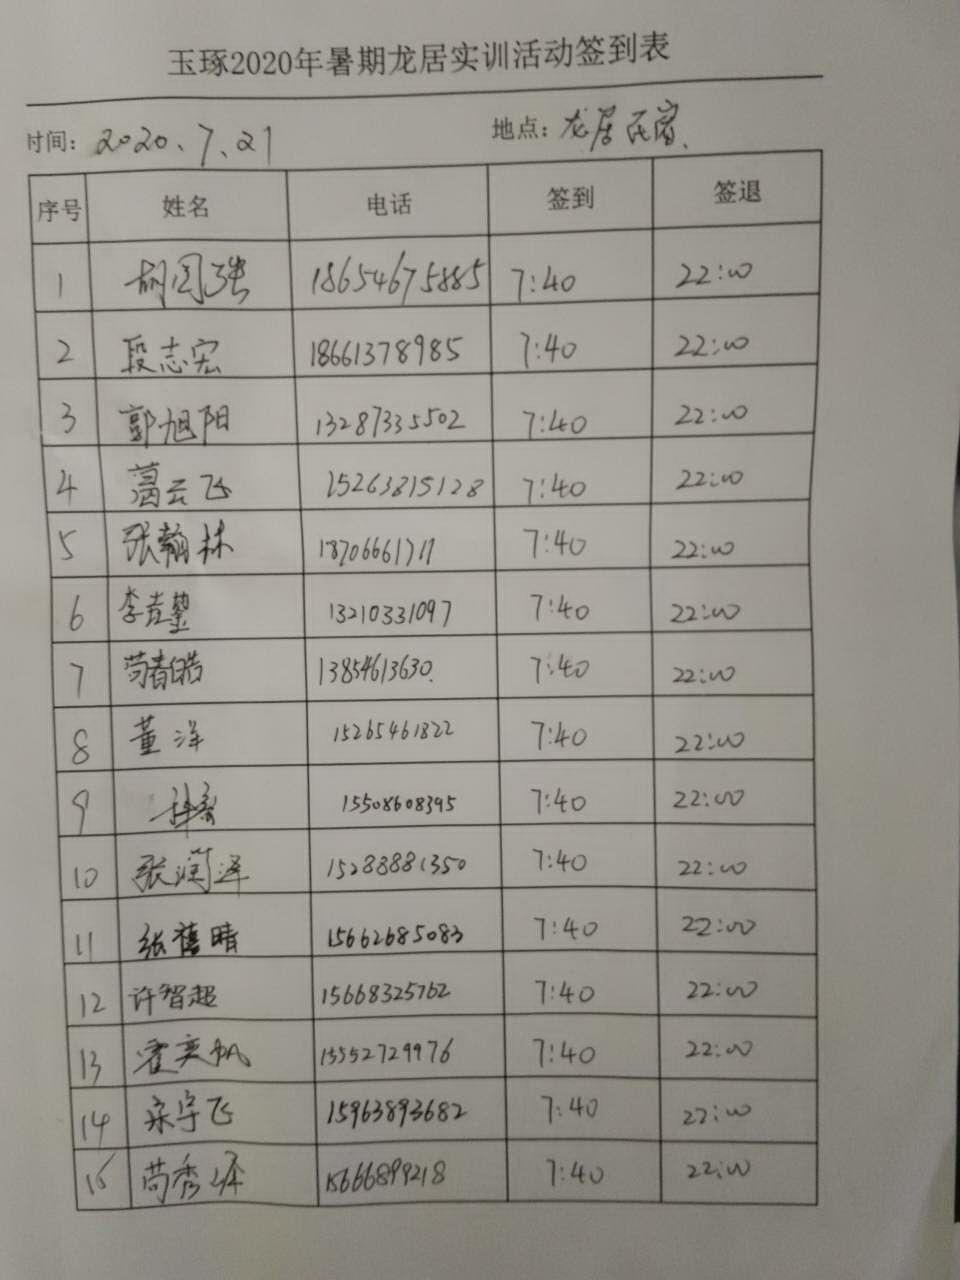 玉琢2020年暑期龙居实训活动签到表
时间：2020、7、21 地点：龙居民宿、
序号 姓名 电话 签到 签退
1 胡国强 18654675885 7:40 22:00
2 段志宏 18661378985 7:40 22:00
3 郭旭阳 13287335502 7:40 22:00
4 葛云飞 15263815128 7:40 22:00
5 张翰林 18706661711 7:40 22:00
6 李吉 13210331097 7:40 22:00
7 苟春皓 13854613630. 7:40 22:00
8 董洋 15265461822 7:40 22:00
9 15508608395 7:40 22:00
10 张润泽 15288881350 7:40 22:00
11 张禧晴 15662685083 7:40 22:00
12 许智超 15668325762 7:40 22:00
13 霍奕帆 15552729976 7:40 22:00
14 宋宇飞 15963893682 7:40 22:00
15 苟秀 15666899218 7:40 22:00